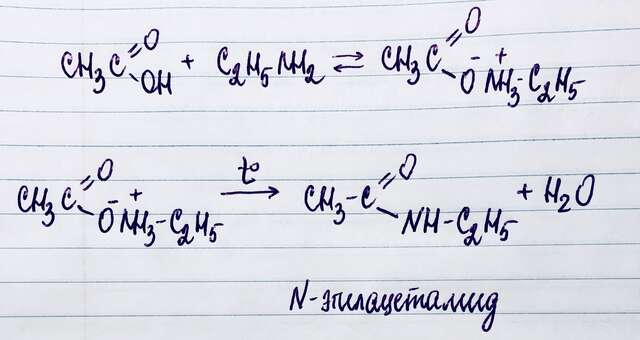 CH₃C=O OH + C₂H₅NH₂ ⇌ CH₃C=O O⁻ ⁺NH₃-C₂H₅
CH₃C=O O⁻ ⁺NH₃-C₂H₅ t° → CH₃-C=O NH-C₂H₅ + H₂O
N-этилацетамид